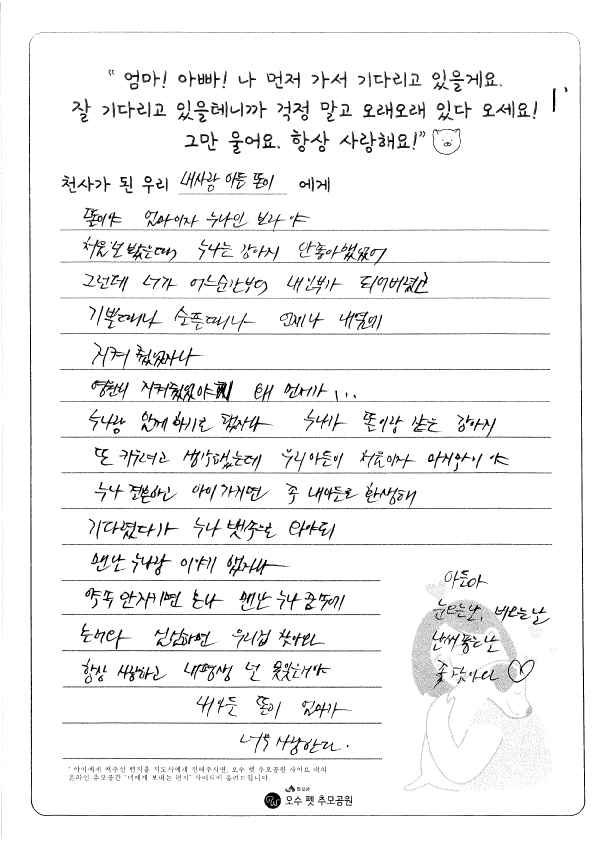 “ 엄마! 아빠! 나 먼저 가서 기다리고 있을게요.
잘 기다리고 있을테니까 걱정 말고 오래오래 있다 오세요!
그만 울어요. 항상 사랑해요!”
천사가 된 우리 내사랑 아들 똘이 에게
똘이야 엄마이자 누나인 보라야
처음 널 봤을때 누나는 강아지 안좋아했었어
그런데 너가 어느순간부터 내 전부가 되어버렸
기쁠때나 슬픈때나 언제나 내옆에
지켜 줬었잖아
영원히 지켜줬어야 왜 먼저가 ...
누나랑 함께 하기로 했잖아 누나가 똘이랑 같은 강아지
또 키우려고 생각했는데 우리아들이 처음이자 마지막이야
누나 결혼하고 아이 가지면 꼭 내아들로 환생해
기다렸다가 누나 뱃속으로 와야되
맨난 누나랑 이야기 했잖아
약속 안지키면 혼나 맨난 누나 꿈속에
놀러와 심심하면 우리집 찾아와
항상 사랑하고 내평생 널 못잊을거야
내아들 똘이 엄마가
너무 사랑한다.
아들아
눈오는날, 비오는날
날씨 좋은날
꽃 같아라
* 아이에게 써주신 편지를 지도사에게 전해주시면, 오수 펫 추모공원 사이트 내의
온라인 추모공간 "너에게 보내는 편지" 사이트에 올려드립니다.
임실군
오수 펫 추모공원